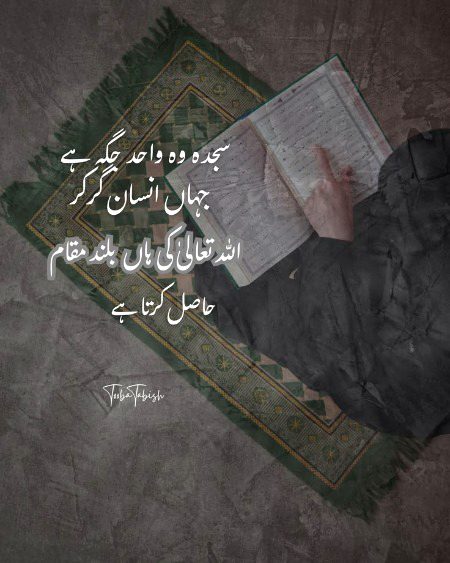 سجدہ وہ واحد جگہ ہے
جہاں انسان گر کر
اللہ تعالیٰ کی ہاں بلند مقام
حاصل کرتا ہے
ToobaTabish